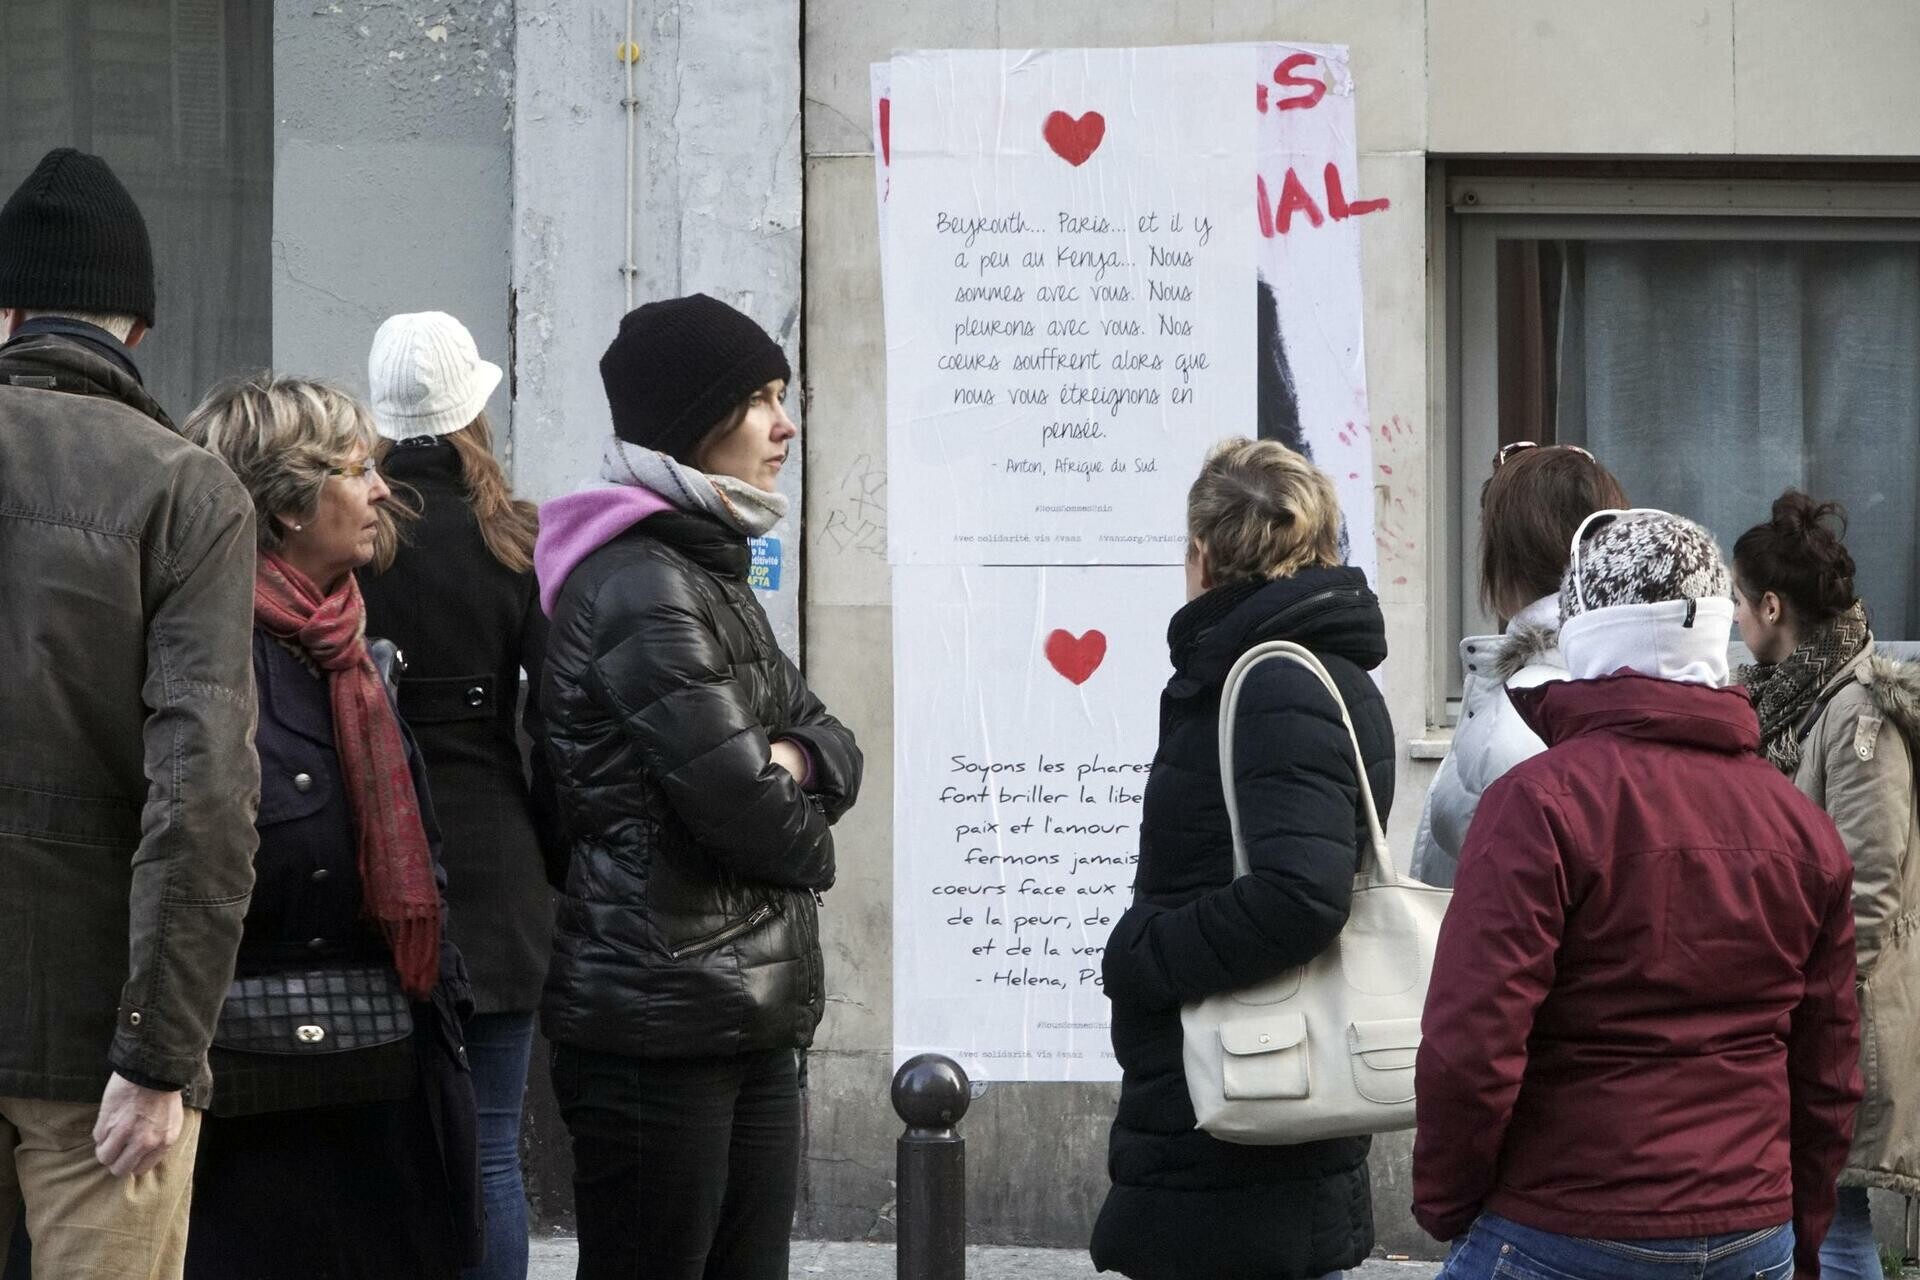 Beyrouth... Paris... et il y
a peu au Kenya... Nous
sommes avec vous. Nous
pleurons avec vous. Nos
coeurs souffrent alors que
nous vous étreignons en
pensée.
- Anton, Afrique du Sud
#NousSommesUnis
Avec solidarité via Avaaz
Soyons les phares
font briller la
paix et l'amour
fermons jamais
coeurs face aux
de la peur, de
et de la
- Helena,
#NousSommesUnis
Avec solidarité via Avaaz
STOP